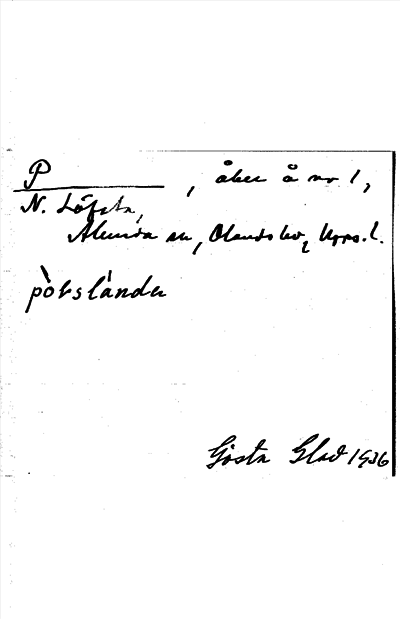 P , åker å nr 1,
N. Löfsta,
Alunda sn, Olands hd, Upps. l.
pòtslánder
Gösta Glad 1936